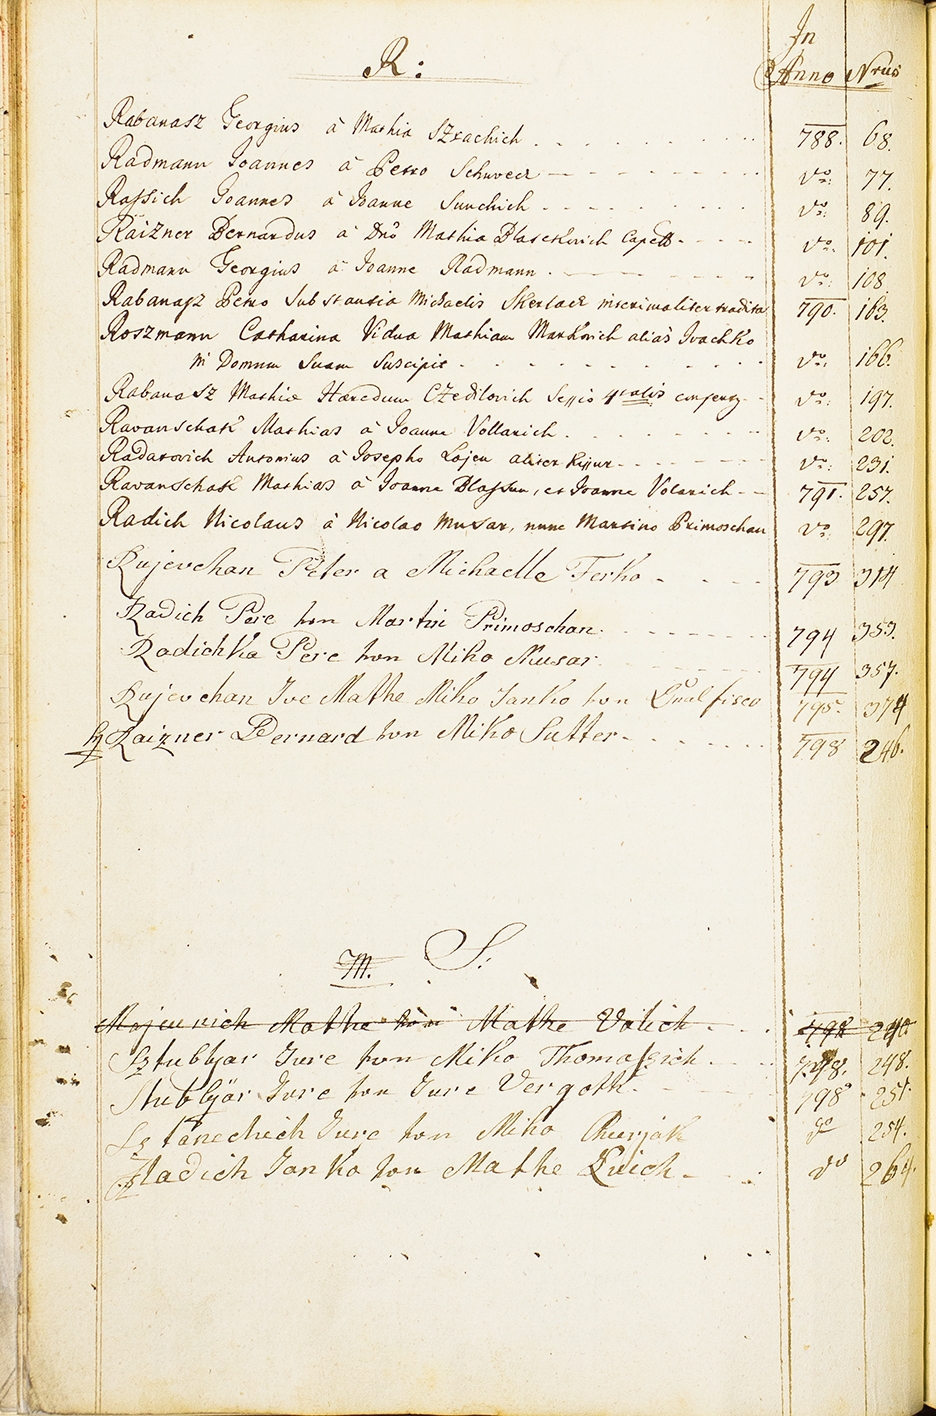 R:
In
Anno Nrus
Rabanasz Georgius à Mathia Szrachich 788. 68.
Radmann Joannes à Petro Schweck do: 77.
Rassich Joannes à Joanne Sunchich do: 89.
Raizner Bernardus à Dno Mathia Blasekovich Capell. do: 101.
Radmann Georgius à Joanne Radmann do: 108
Rabanasz Petro Substantia Michaelis Skerlack inscrimaliter tradita 790. 163.
Roszmann Catharina Vidua Mathiam Markovich alias Ivachko
in Domum Suam Suscipit do: 166.
Rabanasz Mathiae Haeredum Czedilovich Sessio 4talis do: 197.
Ravanschak Mathias à Joanne Vollarich do: 202.
Radatovich Antonius à Josepho Lojen aliter do: 231.
Ravanschak Mathias à Joanne Blassun, et Joanne Volarich 791. 257.
Radich Nicolaus à Nicolao Musar, nunc Martino Primoschan do: 297.
Rujevchan Peter a Michaelle Ferko 793 314
Radich Pere von Martin Primoschan 794 353.
Radichka Pere von Miko Musar 794 357.
Rujevchan Ive Mathe Miko Janko von 795. 374
Raizner Bernard von Miko Sutter 798 246.
M. S:
Majeurich Mathe von Mathe Valich 798 240
Sztubljar Jure von Miko Thomassich 798. 248.
Stubljar Jure von Jure Vergoth 798 251.
Sztanechich Jure von Miko do 254.
Sztadich Janko von Mathe Luich do 264.